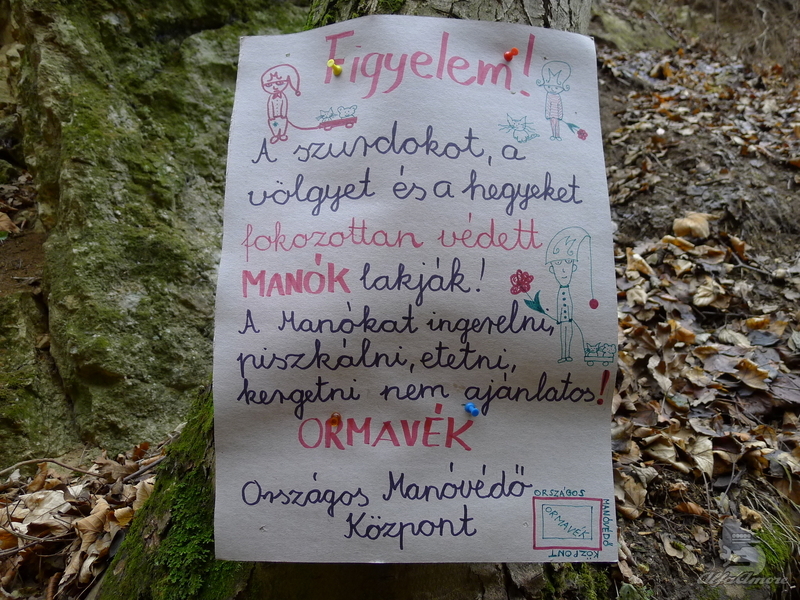 Figyelem!
A szurdokot, a
völgyet és a hegyeket
fokozottan védett
MANÓK lakják!
A Manókat ingerelni,
piszkálni, etetni,
kergetni nem ajánlatos!
ORMAVÉK
Országos Manóvédő
Központ
ORSZÁGOS
MANÓVÉDŐ
KÖZPONT
ORMAVÉK